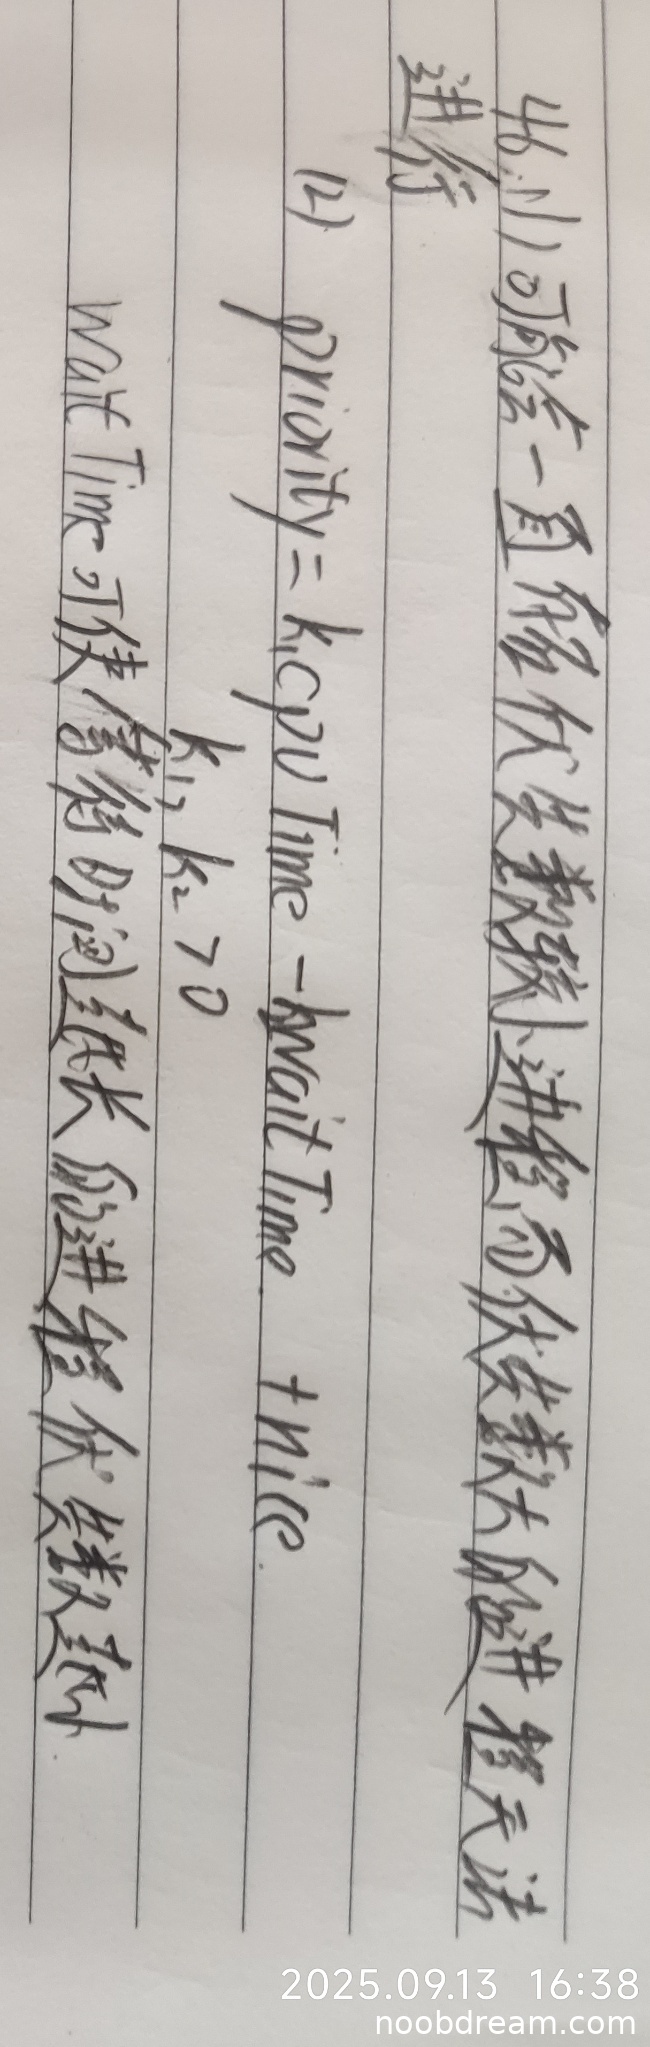 46.(1)可能会一直给优先数较小进程,而优先数大的进程无法
进行
(2) priority = k₁cpuTime - kwaitTime + nice.
k₁, k₂ > 0
waitTime可使等待时间越长的进程优先数越小.
2025.09.13 16:38
noobdream.com